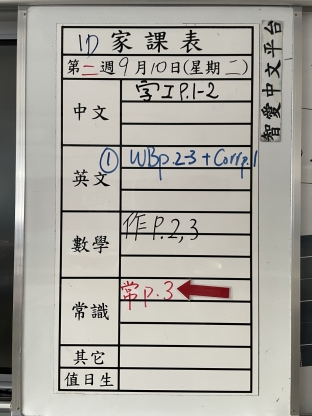 1D 家課表
第二週9月10日(星期二)
中文 字工P.1-2
英文 ① WBp.2-3 + Corr p.1
數學 作P.2,3
常識 常P.3
其它
值日生
智愛中文平台